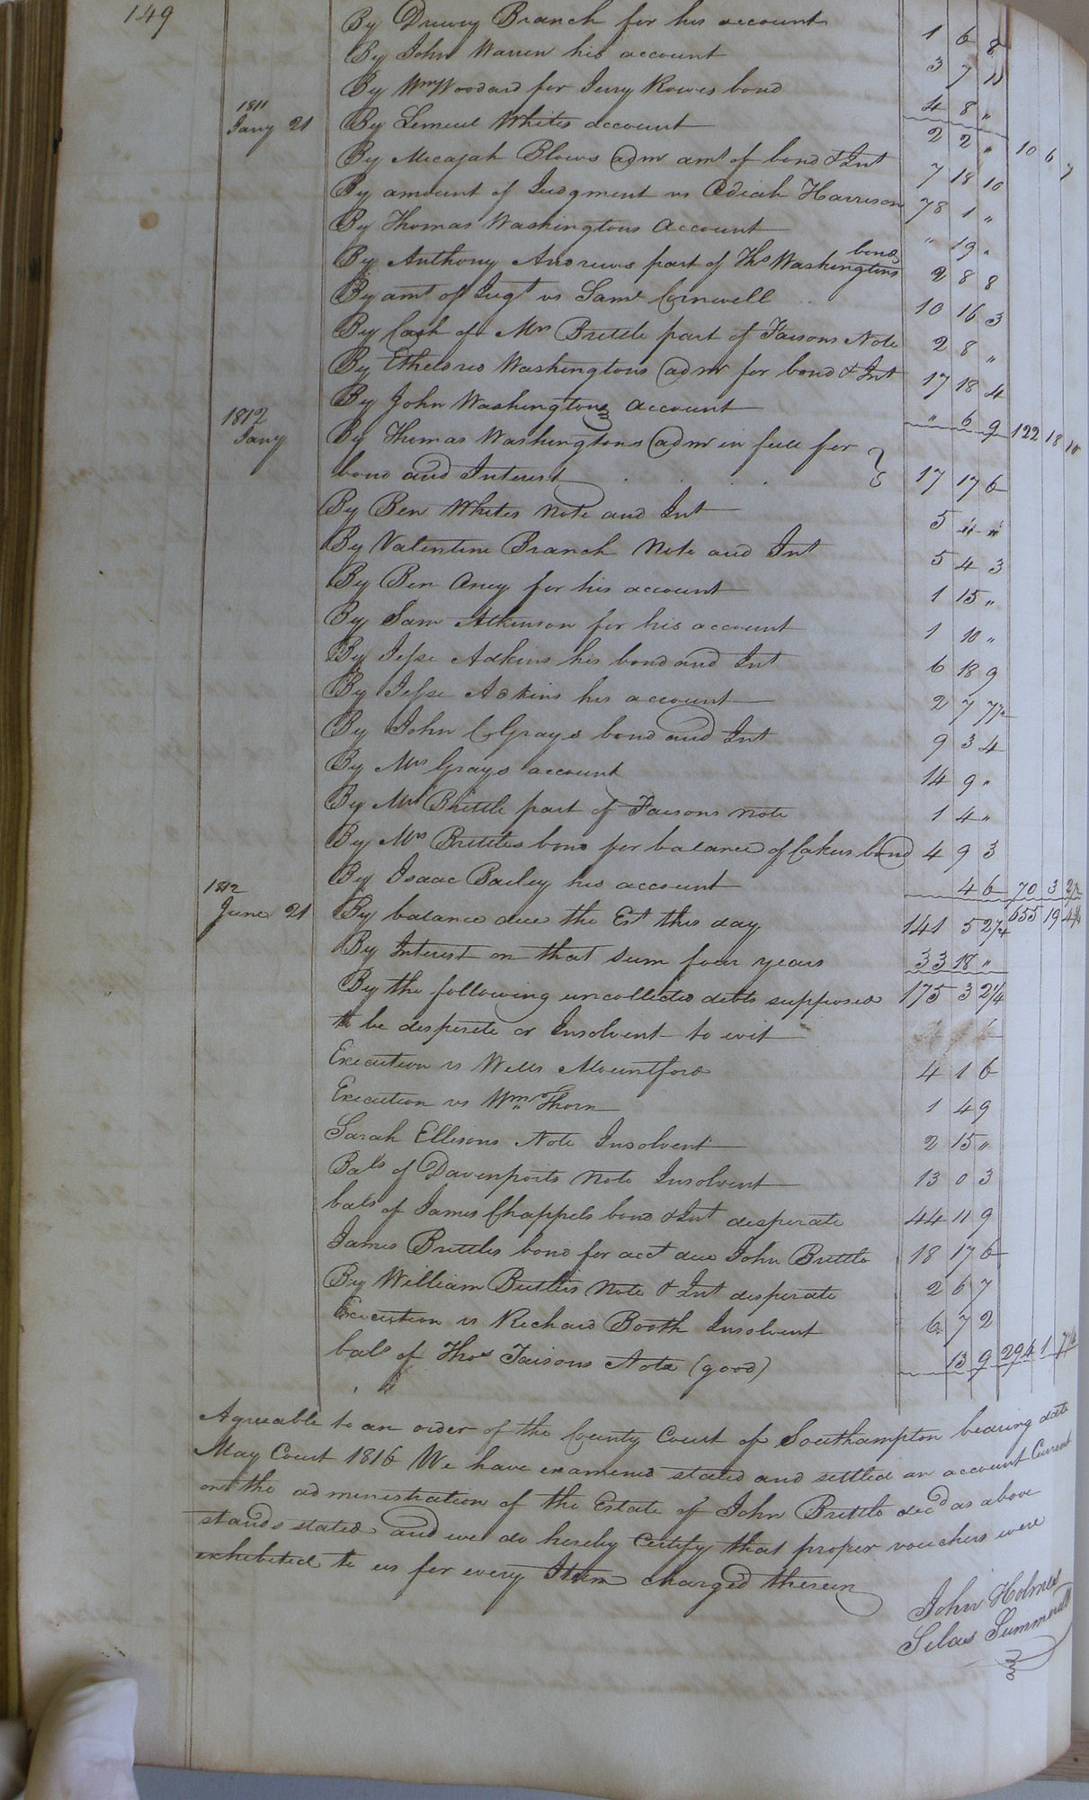 149
By Drewry Branch for his account 1 6 8
By John Warren his account 3 7 11
By Wm Woodard for Jerry Rowes bond 4 8 „ 10 6 7
1811
Jany 21 By Lemuel Whites account 2 2 „
By Micajah Blows adm amt of bond & Int 7 18 10
By amount of Judgment vs Adiah Harrison 78 1 „
By Thomas Washingtons Account „ 19 „
By Anthony Andrews part of Ths Washingtons bond 2 8 8
By amt of Jugt vs Saml Cornwell 10 16 3
By Cash of Mrs Brittle part of Faisons Note 2 8 „
By Ethelred Washingtons admr for bond & Int 17 18 4
By John Washingtons account „ 6 9 122 18 10
1812
Jany By Thomas Washingtons admr in full for
bond and Interest 17 17 6
By Ben Whites Note and Int 5 „ „
By Valentine Branch Note and Int 5 4 3
By Ben Aney for his account 1 15 „
By Sam Atkinson for his account 1 10 „
By Jesse Adkins his bond and Int 6 18 9
By Jesse Adkins his account 2 7 7½
By John C Grays bond and Int 9 3 4
By Mrs Grays account 14 9 „
By Mrs Brittle part of Faisons note 1 4 „
By Mrs Brittles bond for balance of Cakers bond 4 9 3
By Isaac Bailey his account 4 6 70 3 2½
655 19 4¼
1812
June 21 By balance due the Est this day 141 5 2¼
By Interest on that sum four years 33 18 „
By the following uncollected debts supposed 175 3 2¼
to be desperete or Insolvent to wit
Execution vs Wells Mountford 4 1 6
Execution vs Wm Thorn 1 4 9
Sarah Ellisons Note Insolvent 2 15 „
Bals of Davenports note Insolvent 13 0 3
bals of James Chappels bond & Int desperate 44 11 9
James Brittles bond for acct due John Brittle 18 17 6
By William Brittles Note & Int desperate 2 6 7
Execution vs Richard Booth Insolvent 6 7 2
bals of Thos Faisons Note (good) 13 9 294 1 7¼
Agreeable to an order of the County Court of Southampton bearing date
May Court 1816 We have examined stated and settled an account Current
on the administration of the Estate of John Brittle decd as above
stands stated and we do hereby Certify that proper vouchers were
exhibited to us for every Item charged therein
John Holmes
Silas Summerell